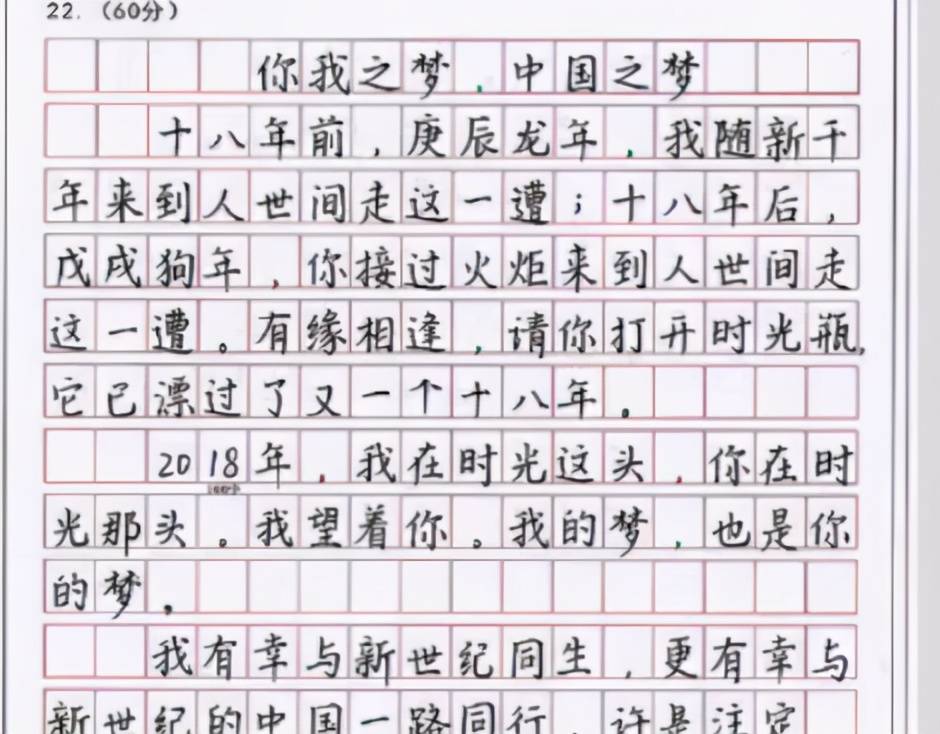 22. (60分)
你我之梦,中国之梦
十八年前,庚辰龙年,我随新千
年来到人世间走这一遭;十八年后,
戊戌狗年,你接过火炬来到人世间走
这一遭。有缘相逢,请你打开时光瓶,
它已漂过了又一个十八年。
2018年,我在时光这头,你在时
光那头。我望着你。我的梦,也是你
的梦。
我有幸与新世纪同生,更有幸与
新世纪的中国一路同行。许是注定